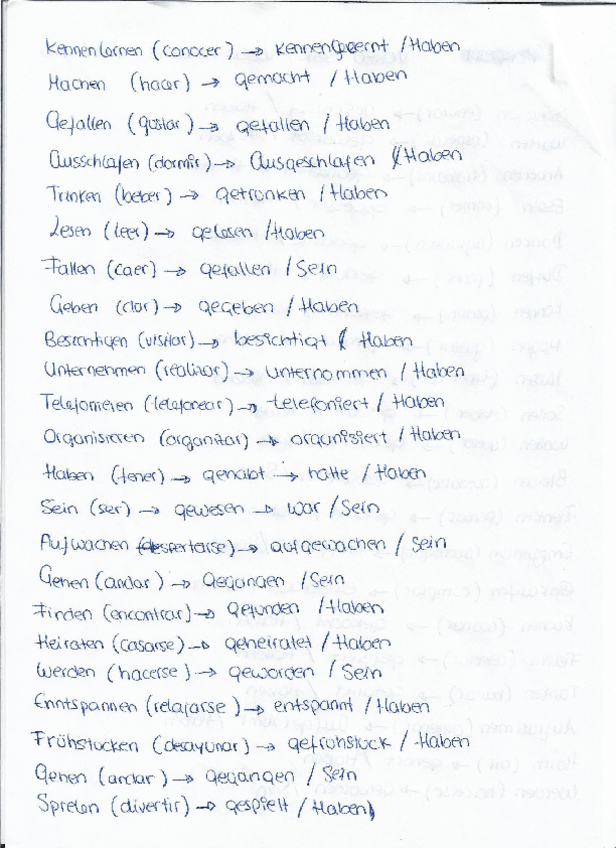 Kennenlernen (conocer) → kennengelernt / Haben
Machen (hacer) → gemacht / Haben
Gefallen (gustar) → gefallen / Haben
Ausschlafen (dormir) → Ausgeschlafen / Haben
Trinken (beber) → getrunken / Haben
Lesen (leer) → gelesen / Haben
Fallen (caer) → gefallen / Sein
Geben (dar) → gegeben / Haben
Besichtigen (visitar) → besichtigt / Haben
Unternehmen (realizar) → unternommen / Haben
Telefonieren (telefonear) → telefoniert / Haben
Organisieren (organitar) → organisiert / Haben
Haben (tener) → gehabt → hatte / Haben
Sein (ser) → gewesen → war / Sein
Aufwachen (despertarse) → aufgewachen / Sein
Gehen (andar) → Gegangen / Sein
Finden (encontrar) → Gefunden / Haben
Heiraten (casarse) → geheiratet / Haben
Werden (hacerse) → geworden / Sein
Enntspannen (relajarse) → entspannt / Haben
Frühstucken (desayunar) → gefrühstuck / Haben
Gehen (andar) → Gegangen / Sein
Sprelen (divertir) → gespielt / Haben